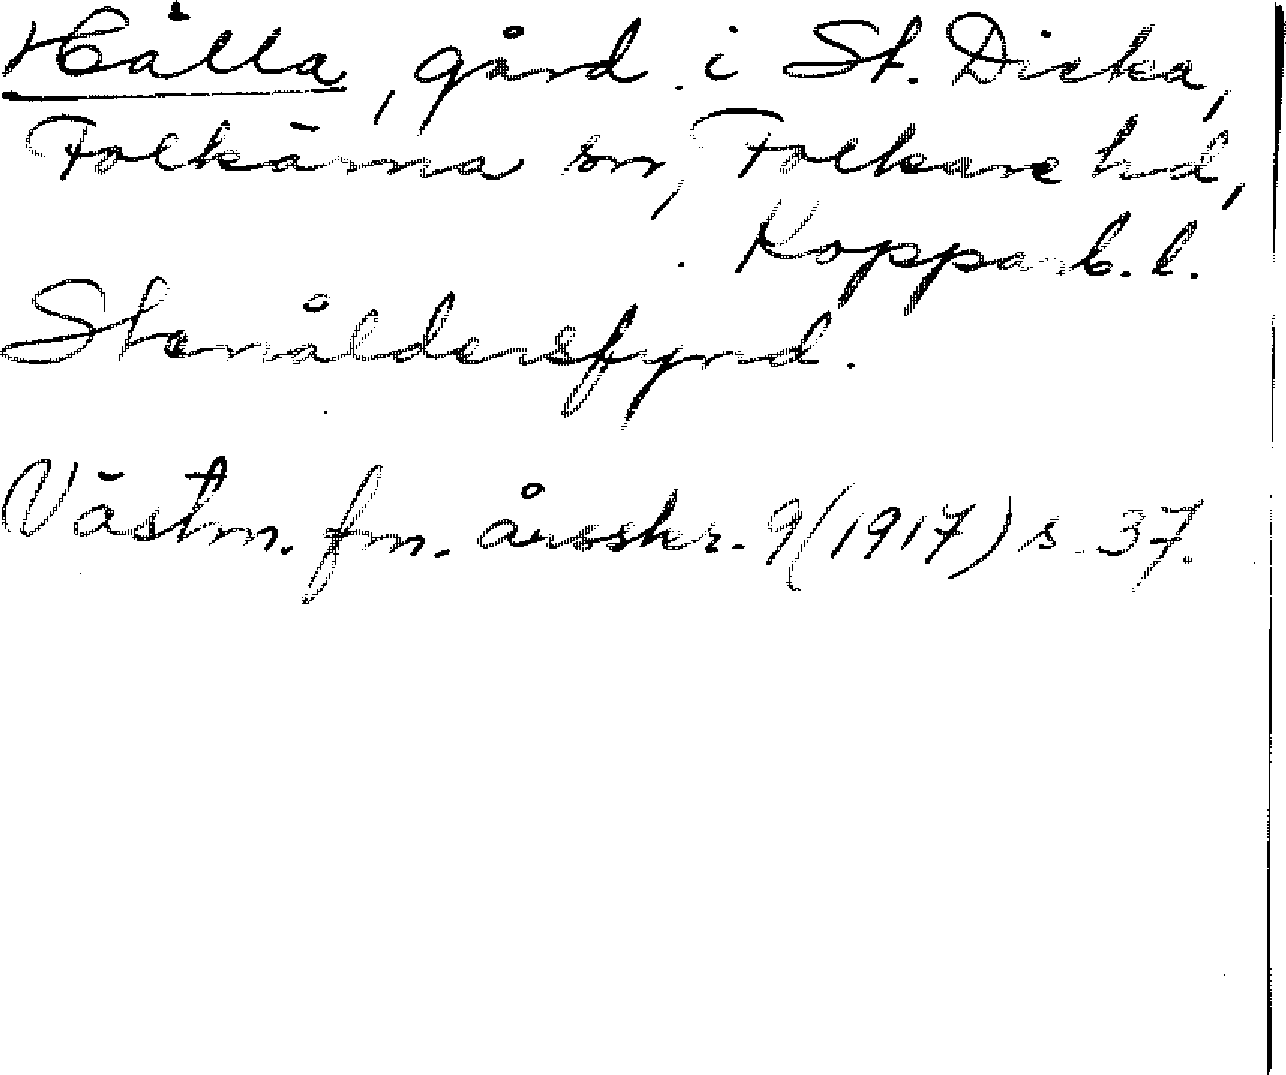 Hålla, gård i St. Dicka,
Folkärna sn, Folkare hd,
Kopparb. l.
Stenåldersfynd.
Västm. fm. årsskr. 9 (1917) s. 37.